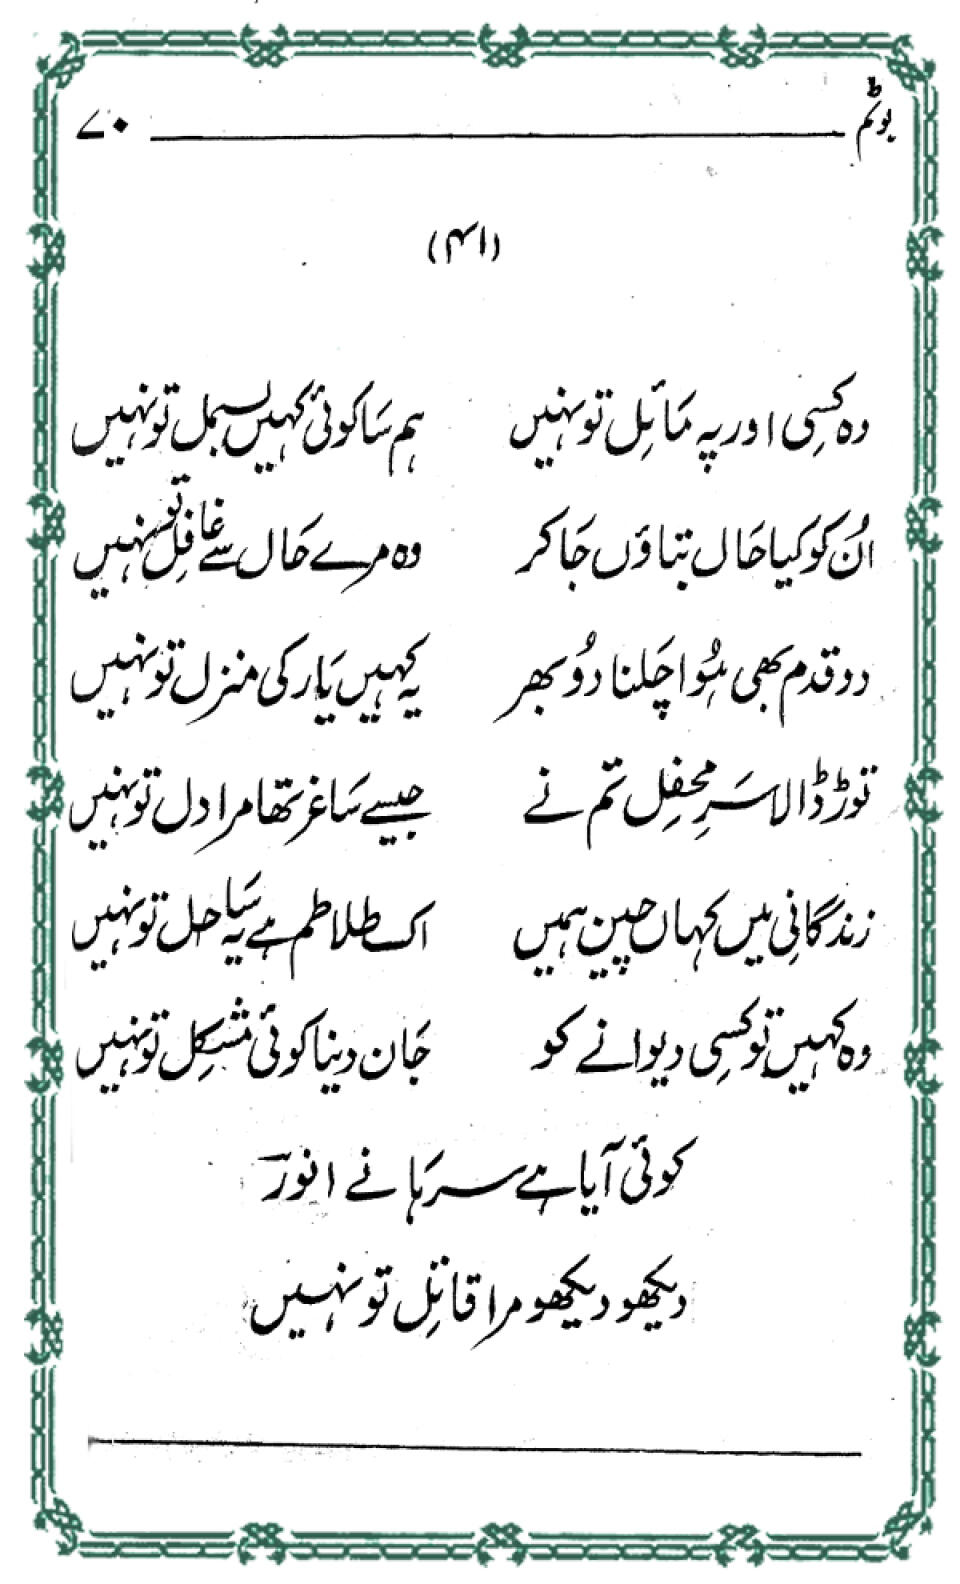 یوٹم ۷۰
(۴۱)
وہ کسی اور پہ مائل تو نہیں ہم سا کوئی کہیں بسمل تو نہیں
اُن کو کیا حال بتاؤں جا کر وہ مرے حال سے غافل تو نہیں
دو قدم بھی ہُوا چلنا دُوبھر یہ کہیں یار کی منزل تو نہیں
توڑ ڈالا سرِ محفل تم نے جیسے ساغر تھا مرا دل تو نہیں
زندگانی میں کہاں چین ہمیں اک طلاطم ہے یہ ساحل تو نہیں
وہ کہیں تو کسی دیوانے کو جان دینا کوئی مشکل تو نہیں
کوئی آیا ہے سرہانے انورؔ
دیکھو دیکھو مرا قاتل تو نہیں